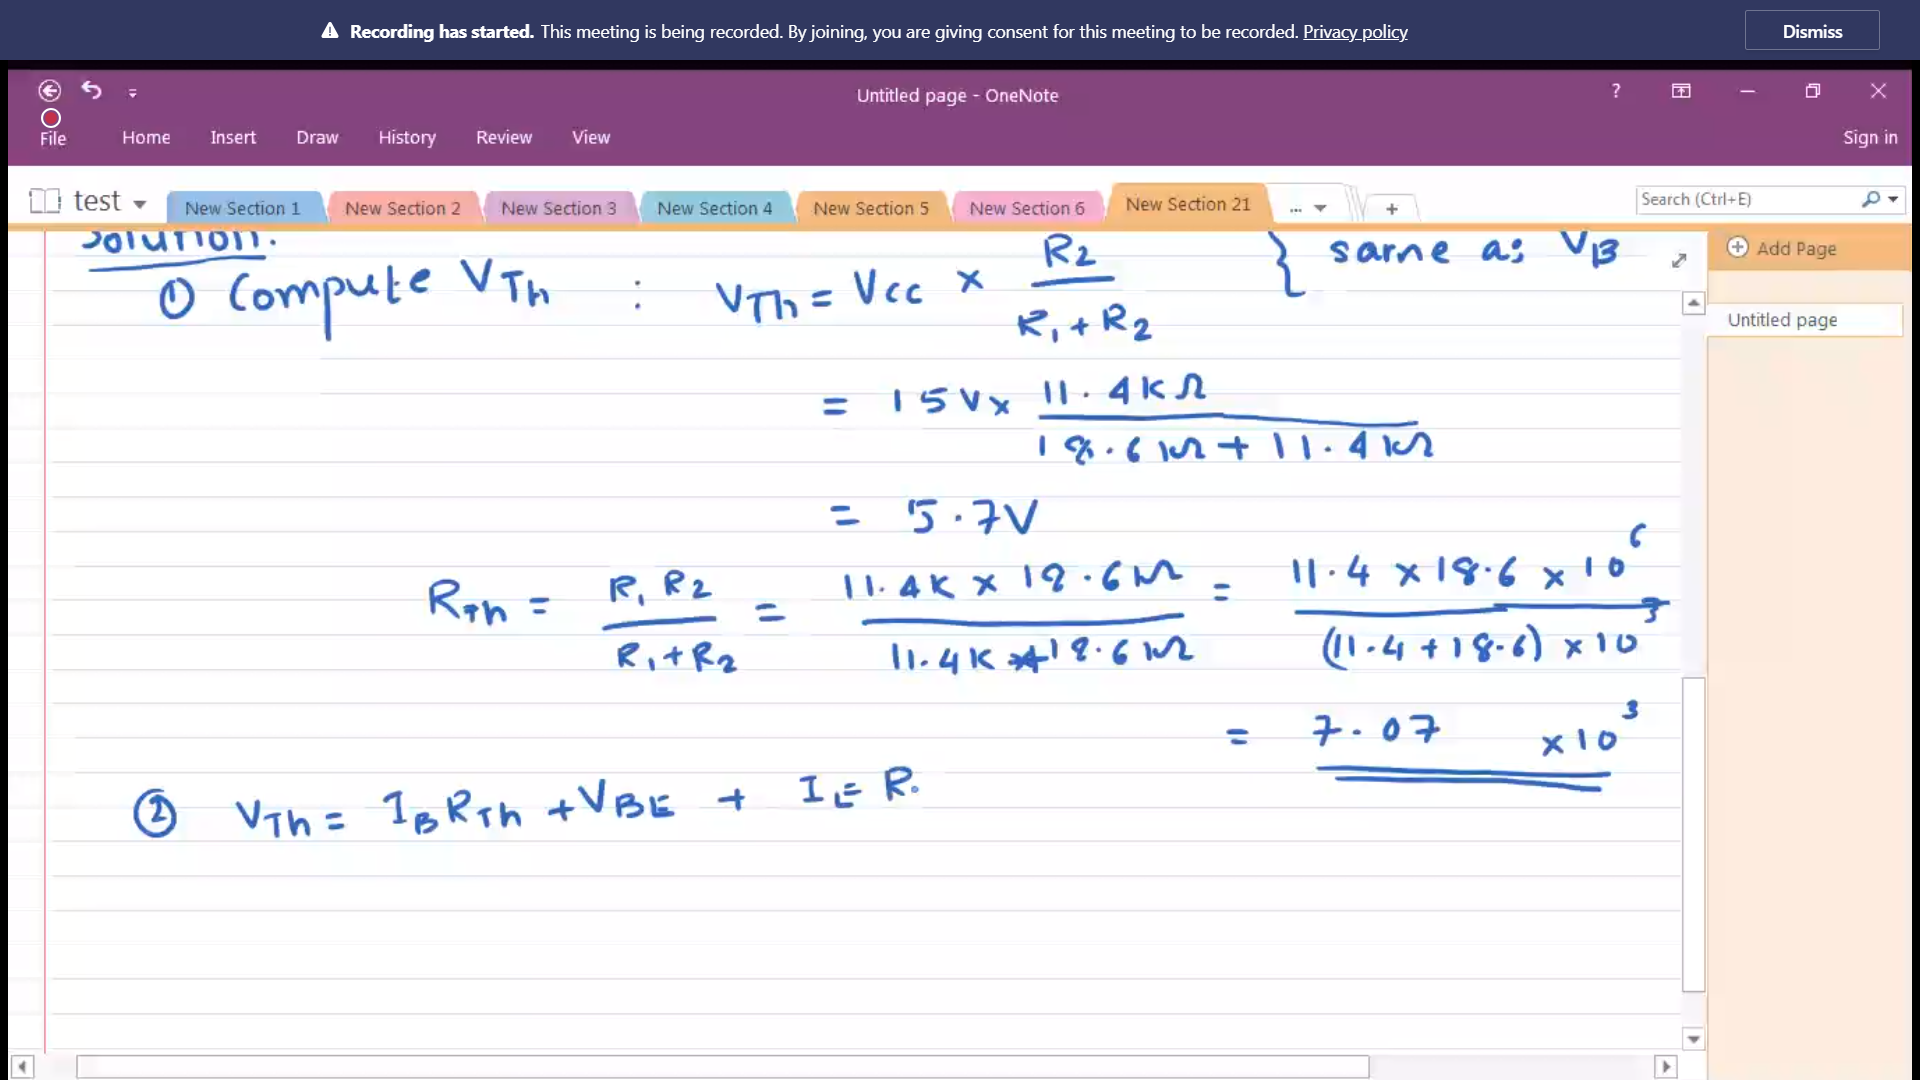 ⚠ Recording has started. This meeting is being recorded. By joining, you are giving consent for this meeting to be recorded. Privacy policy
Dismiss
Untitled page - OneNote
?
File Home Insert Draw History Review View
Sign in
test
New Section 1 New Section 2 New Section 3 New Section 4 New Section 5 New Section 6 New Section 21 ... +
Search (Ctrl+E)
Add Page
Untitled page
Solution.
① Compute VTh : VTh = Vcc × R2 / R1 + R2 } same as VB
= 15V × 11.4KΩ / 18.6KΩ + 11.4KΩ
= 5.7V
RTh = R1 R2 / R1 + R2 = 11.4K × 18.6KΩ / 11.4K + 18.6KΩ = 11.4 × 18.6 × 10^6 / (11.4 + 18.6) × 10^3
= 7.07 × 10^3
② VTh = IB RTh + VBE + IE R